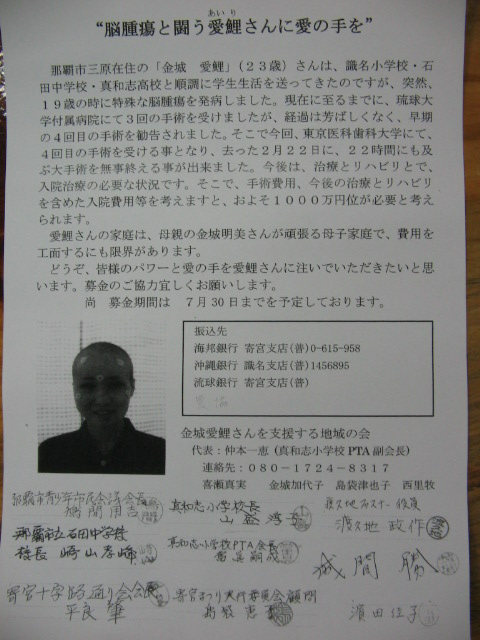 あいり
“脳腫瘍と闘う愛鯉さんに愛の手を”
那覇市三原在住の「金城　愛鯉」（２３歳）さんは、識名小学校・石
田中学校・真和志高校と順調に学生生活を送ってきたのですが、突然、
１９歳の時に特殊な脳腫瘍を発病しました。現在に至るまでに、琉球大
学付属病院にて３回の手術を受けましたが、経過は芳ばしくなく、早期
の４回目の手術を勧告されました。そこで今回、東京医科歯科大学にて、
４回目の手術を受ける事となり、去った２月２２日に、２２時間にも及
ぶ大手術を無事終える事が出来ました。今後は、治療とリハビリとで、
入院治療の必要な状況です。そこで、手術費用、今後の治療とリハビリ
を含めた入院費用等を考えますと、およそ１０００万円位が必要と考え
られます。
愛鯉さんの家庭は、母親の金城明美さんが頑張る母子家庭で、費用を
工面するにも限界があります。
どうぞ、皆様のパワーと愛の手を愛鯉さんに注いでいただきたいと思
います。募金のご協力宜しくお願いします。
尚　募金期間は　７月３０日までを予定しております。
振込先
海邦銀行　寄宮支店(普)0-615-958
沖縄銀行　識名支店(普)1456895
琉球銀行　寄宮支店(普)
金城愛鯉さんを支援する地域の会
代表：仲本一恵（真和志小学校 PTA 副会長）
連絡先：０８０－１７２４－８３１７
喜瀬真実　　金城加代子　島袋津也子　西里牧
真和志小学校長
那覇市立石田中学校
校長　崎山孝
真和志小学校PTA会長
城間　勝
寄宮十字路通り会会長
平良　肇
寄宮まつり実行委員会顧問
濱田佳子